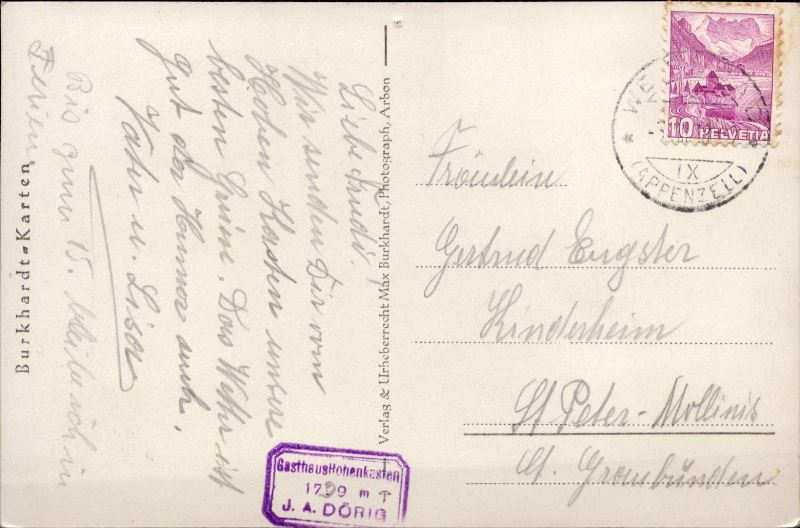 Burkhardt-Karten
Verlag & Urheberrecht Max Burkhardt, Photograph, Arbon
Liebe Trudi!
Wir senden Dir vom
Hohen Kasten unsere
besten Grüsse. Das Wetter ist
gut der Humor auch.
Vater u. Lisa
Bis zum 15. bleibe ich in
Ferien.
10 HELVETIA
IX
(APPENZELL)
Fräulein
Gertrud Eugster
Kinderheim
St. Peter-Mollinis
Ct. Graubünden
Gasthaus Hohenkasten
1799 m
J. A. DÖRIG